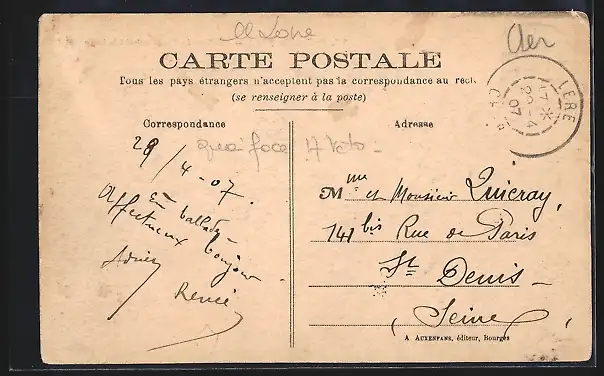 CARTE POSTALE
Tous les pays étrangers n'acceptent pas la correspondance au recto
(se renseigner à la poste)
Correspondance
Adresse
LERE
17 *
29 - 4
07
CHER
29/4-07.
En ballade
Affectueux bonjour
Renée
Mme et Monsieur Quicray,
141 bis Rue de Paris
St Denis -
(Seine),
A AUXENFANS, éditeur, Bourges